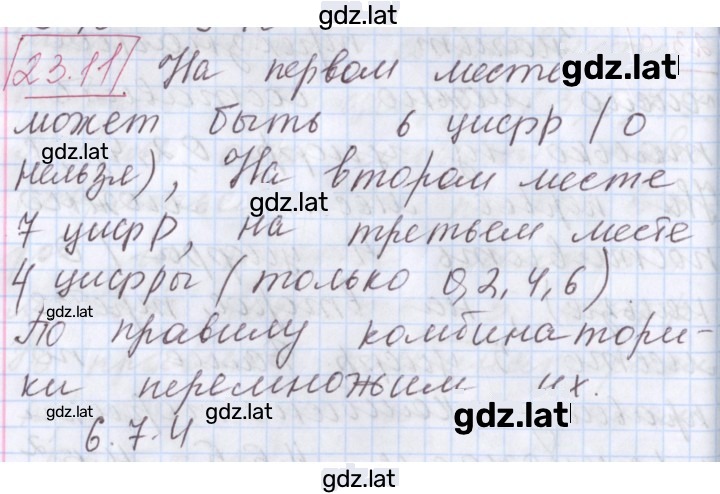 gdz.lat
23.11 На первом месте gdz.lat
может быть 6 цифр (0
gdz.lat
нельзя), На втором месте
gdz.lat
7 цифр, на третьем месте
4 цифры (только 0,2,4,6)
gdz.lat
По правилу комбинатори-
gdz.lat
ки перемножим их.
gdz.lat gdz.lat gdz.lat
6·7·4
gdz.lat